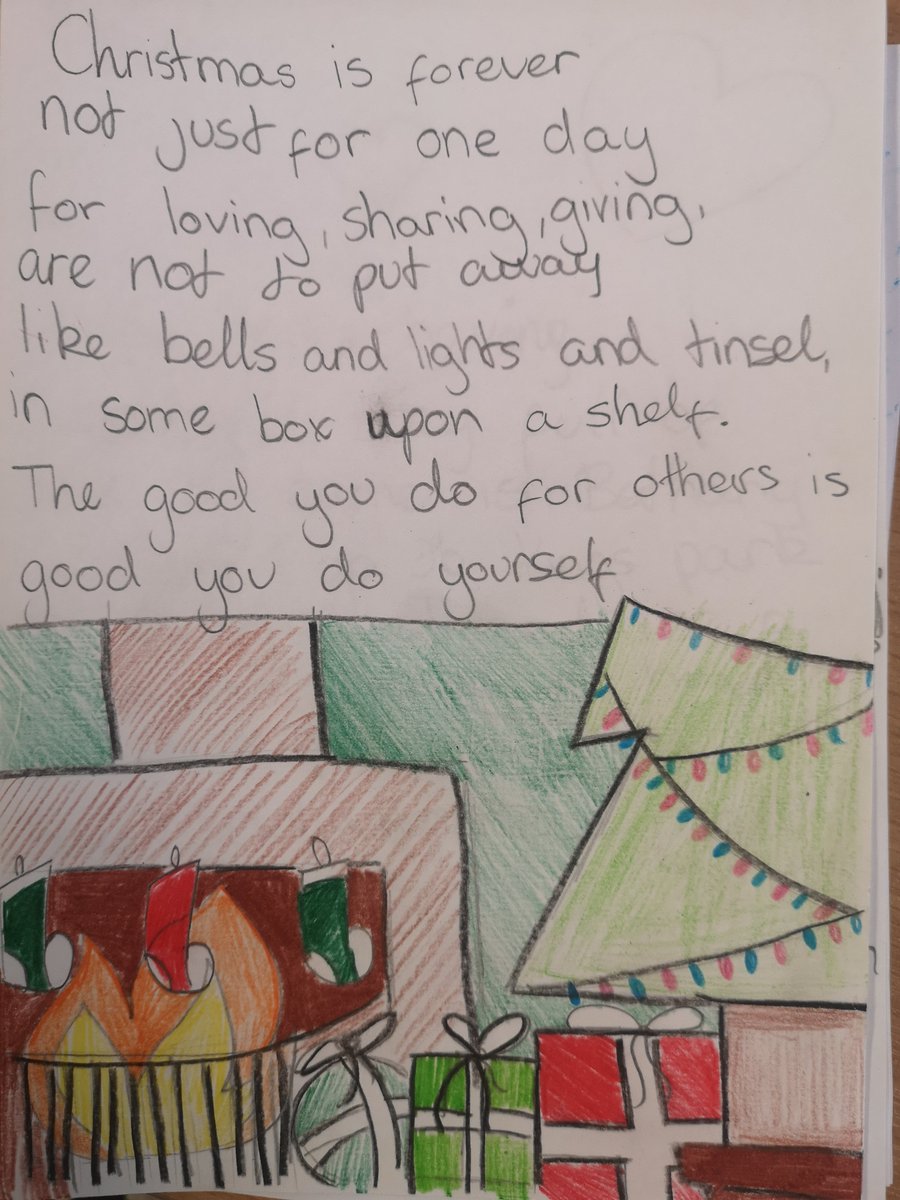 Christmas is forever
not just for one day
for loving, sharing, giving,
are not to put away
like bells and lights and tinsel,
in some box upon a shelf.
The good you do for others is
good you do yourself